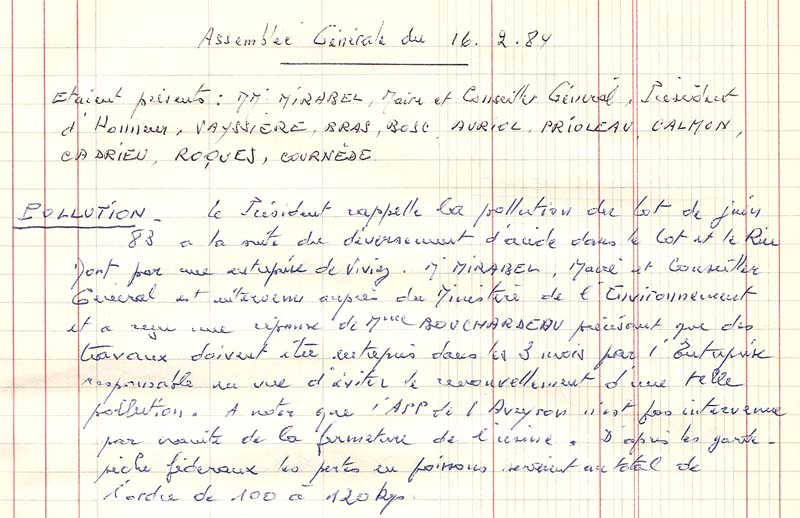 Assemblée Générale du 16.2.84
Etaient présents : MM. MIRABEL, Maire et Conseiller Général, Président
d'Honneur, VAYSSIERE, BRAS, BOSC, AURIOL, PRIOLEAU, CALMON,
CADRIEU, ROQUES, COURNÈDE
POLLUTION - Le Président rappelle la pollution du Lot de juin
83 a la suite du déversement d'acide dans le Lot et le Riou
Mont par une entreprise de Viviez. Mr MIRABEL, Maire et Conseiller
Général est intervenu auprès du Ministère de l'Environnement
et a reçu une réponse de Mme BOUCHARDEAU précisant que des
travaux doivent être entrepris dans les 3 mois par l'Entreprise
responsable en vue d'éviter le renouvellement d'une telle
pollution. A noter que l'APP de l'Aveyron n'est pas intervenue
par crainte de la fermeture de l'usine. D'après les garde-
pêche fédéraux les pertes en poissons seraient au total de
l'ordre de 100 à 120 kgs.